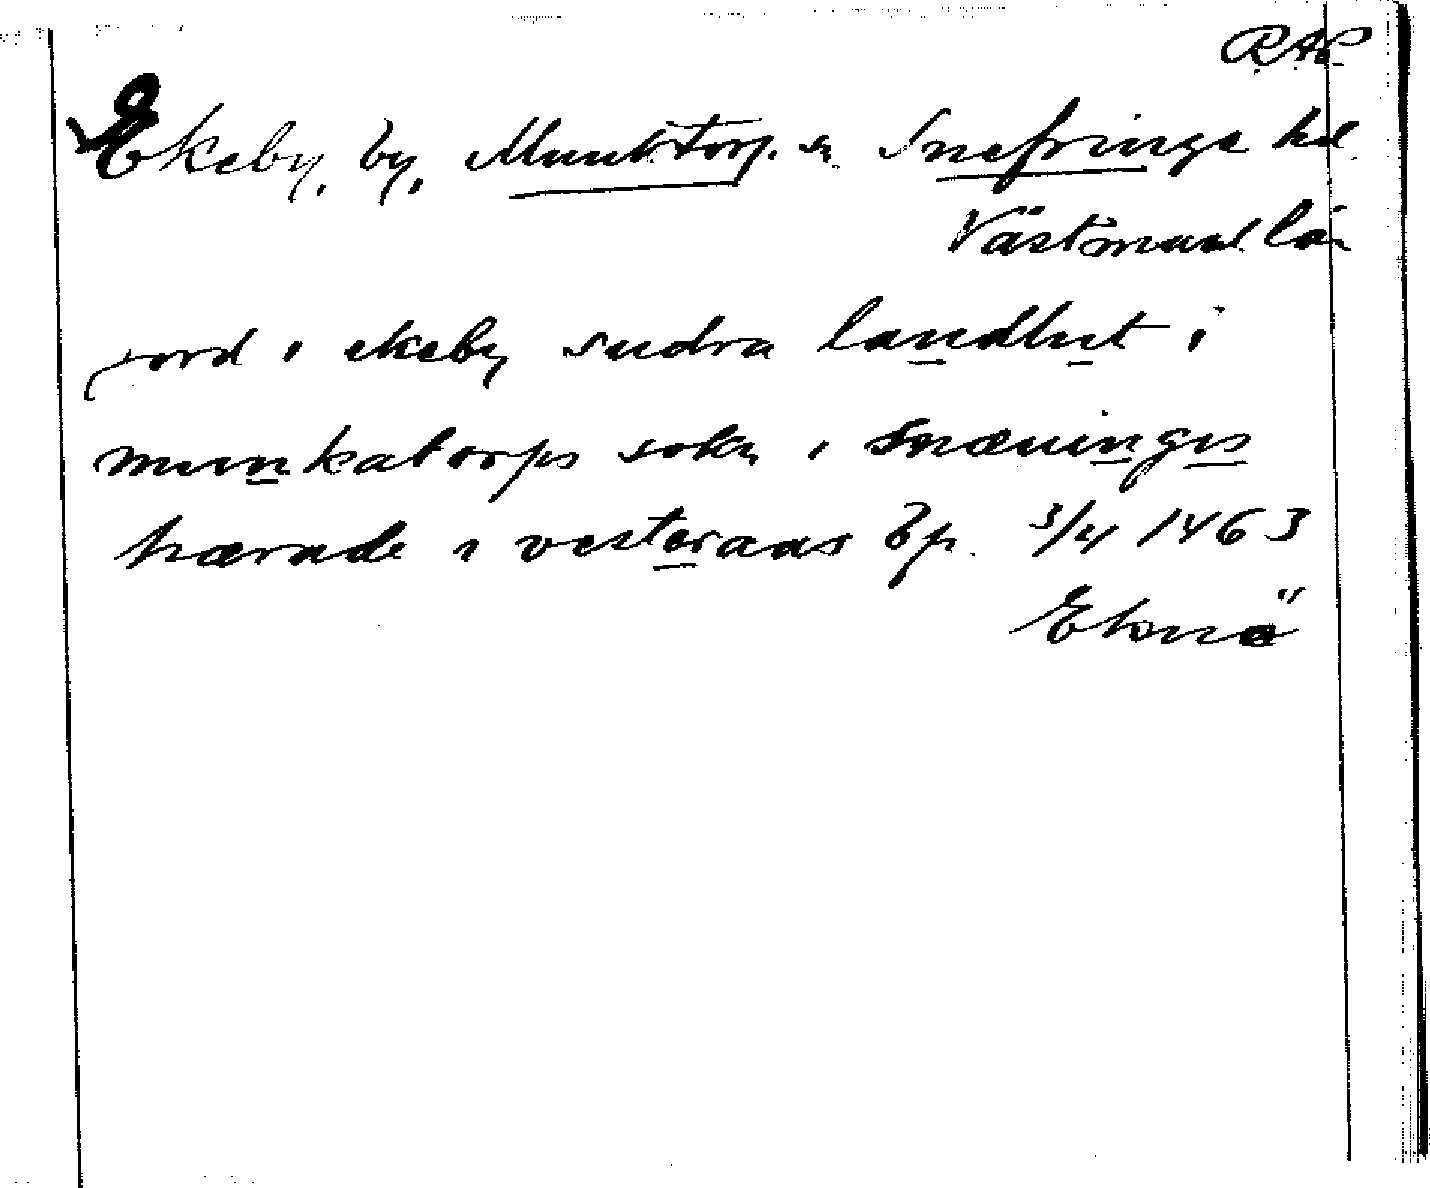 RAP
Ekeby, by, Munktorp. sn Snefringe hd.
Västmanl län
jord i ekeby sudra landlut i
munkatorps sokn i snæuingis
hærade i vesteraas Bp. 3/4 1463
Eknö